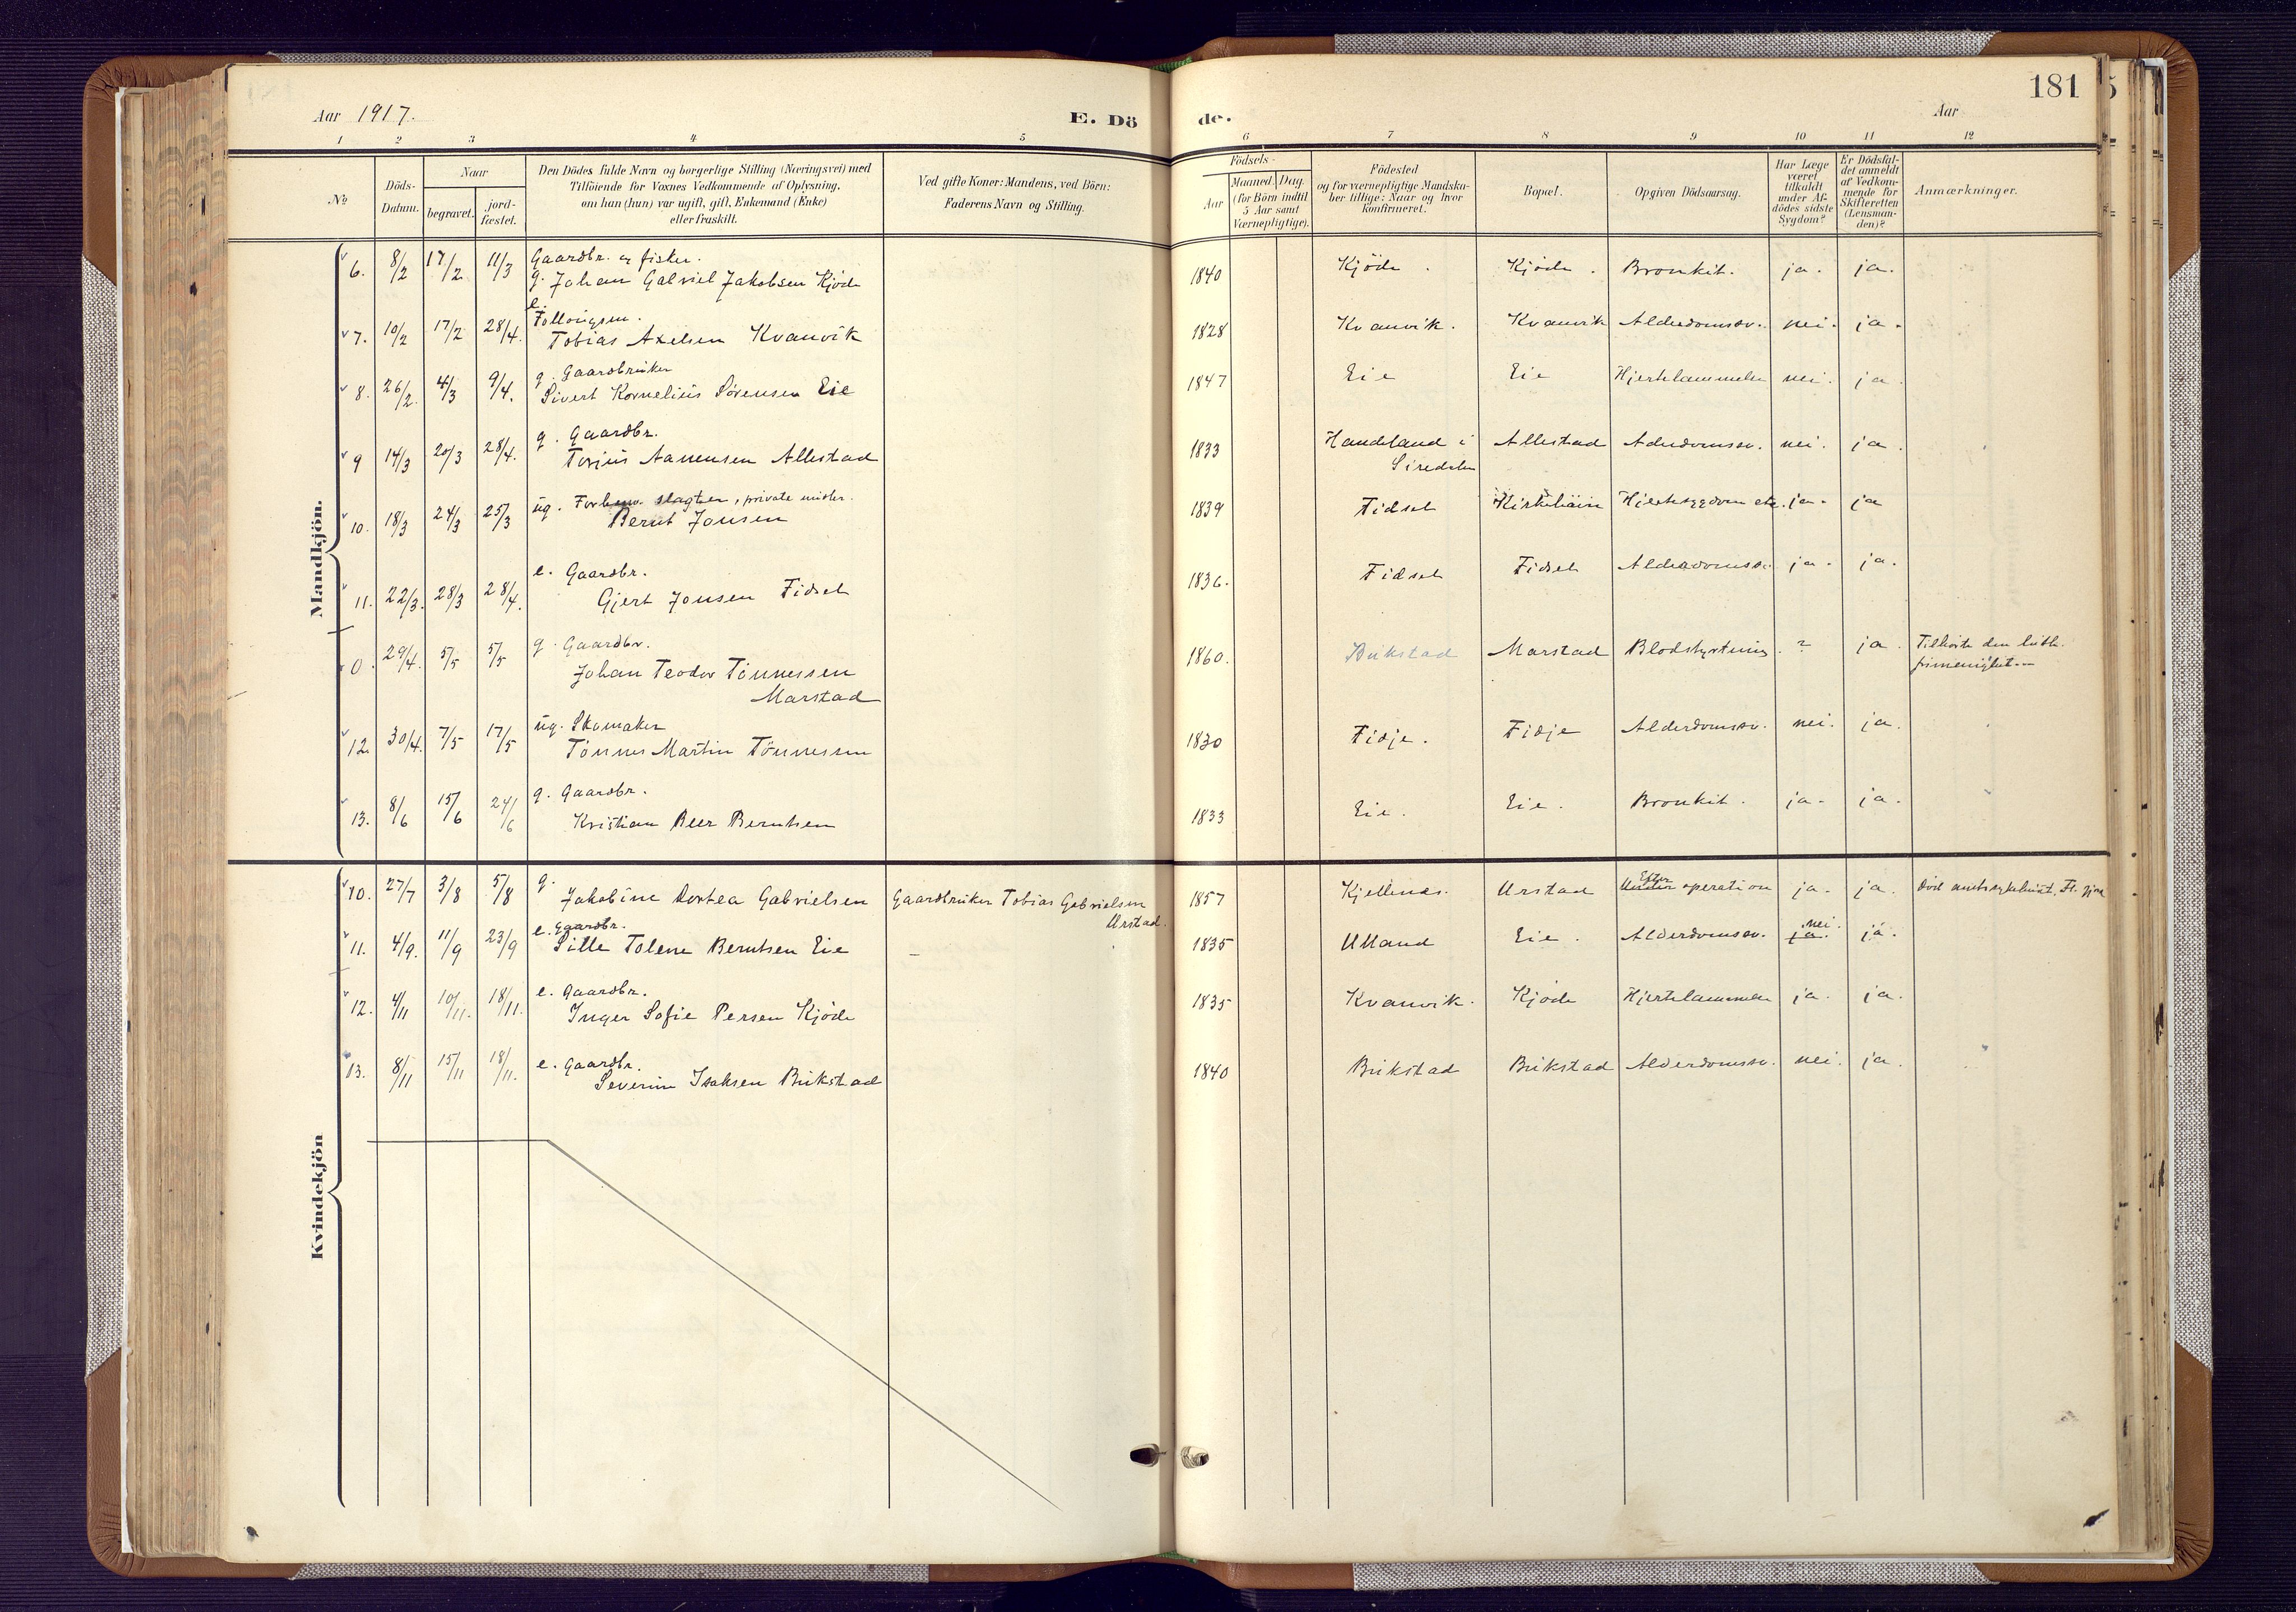 181
Aar 1917.
E. Dö de.
Aar
1 2 3 4 5 6 7 8 9 10 11 12
No
Döds-Datum.
Naar
begravet.
jord-fæstet.
Den Dödes fulde Navn og borgerlige Stilling (Næringsvei) med
Tilföiende for Voxnes Vedkommende af Oplysning,
om han (hun) var ugift, gift, Enkemand (Enke)
eller fraskilt.
Ved gifte Koner: Mandens, ved Börn:
Faderens Navn og Stilling.
Födsels-
Aar
Maaned. Dag.
(for Börn indtil
5 Aar samt
Værnepligtige).
Födested
og for værnepligtige Mandska-
ber tillige: Naar og hvor
konfirmeret.
Bopæl.
Opgiven Dödsaarsag.
Har Læge
været
tilkaldt
under Af-
dödes sidste
Sygdom?
Er Dödsfal-
det anmeldt
af Vedkom-
mende for
Skifteretten
(Lensman-
den)?
Anmærkninger.
Mandkjön.
6. 8/2 17/2 11/3 Gaardbr. og fisker.
g. Johan Gabriel Jakobsen Kjöde 1840 Kjöde. Kjöde. Bronkit. ja. ja.
7. 10/2 17/2 28/4. e.
Tobias Axelsen Kvanvik 1828 Kvanvik. Kvanvik Alderdomssv. nei. ja.
8. 26/2. 4/3 9/4. g. Gaardbruker
Sivert Kornelius Sörensen Eie 1847 Eie Eie Hjertelammelse nei. ja.
9 14/3 20/3 28/4. g. Gaardbr.
Torjus Aanensen Allestad 1833 Handeland i Allestad Aderdomssv. nei. ja.
Siredalen
10. 18/3 24/3 25/3 ug. Forhenv. slagter, private midler.
Bernt Jonsen 1839 Fidsel Hjertesygdom etc. ja. ja
11. 22/3. 28/3 28/4. e. Gaardbr.
Gjert Jonsen Fidsel 1836. Fidsel Fidsel Alderdomssv. ja. ja.
0. 29/4. 5/5 5/5 g. Gaardbr.
Johan Teodor Tönnessen 1860. Bukstad Marstad Blodstyrtning. ? ja. Tilhörte den luth.
Marstad frimenighet.
12. 30/4. 7/5 17/5 ug. Skomaker
Tönnes Martin Tönnesen 1830 Fidje. Fidje Alderdomssv. nei. ja.
13. 8/6 15/6 24/6 g. Gaardbr.
Kristian Beer Berntsen 1833 Eie. Eie. Bronkit. ja. ja.
Kvindekjön
10. 27/7 3/8 5/8 g.
Jakobine Dortea Gabrielsen Gaardbruker Tobias Gabrielsen 1857 Urstad Efter Under operation ja. ja.
Urstad.
11. 4/9. 11/9 23/9 e. Gaardbr.
Sille Tolene Berntsen Eie – 1835 Ulland Eie. Alderdomssv. ja. nei. ja.
12. 4/11 10/11. 18/11. e. Gaardbr.
Inger Sofie Persen Kjöde 1835 Kvanvik. Kjöde Hjertelammelse ja. ja.
13. 8/11 15/11 18/11. e. Gaardbr.
Severine Isaksen Bukstad 1840 Bukstad Bukstad Alderdomssv. nei. ja.